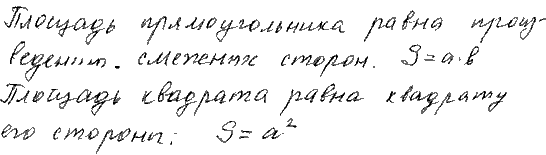 Площадь прямоугольника равна произ-
ведению смежных сторон. S=a·b
Площадь квадрата равна квадрату
его стороны: S=a²